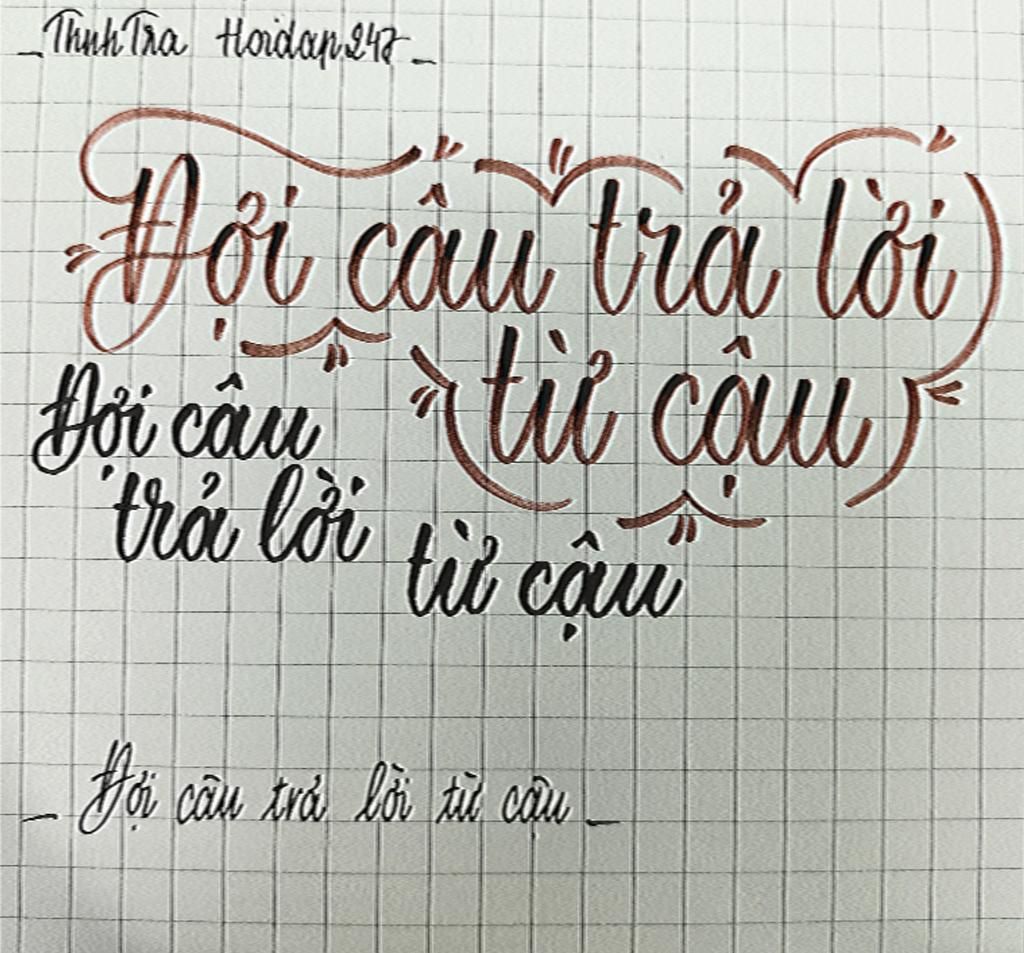 _ThnhTra Hoidap247_
Đợi câu trả lời
từ cậu
Đợi câu
trả lời
từ cậu
_ Đợi câu trả lời từ cậu _